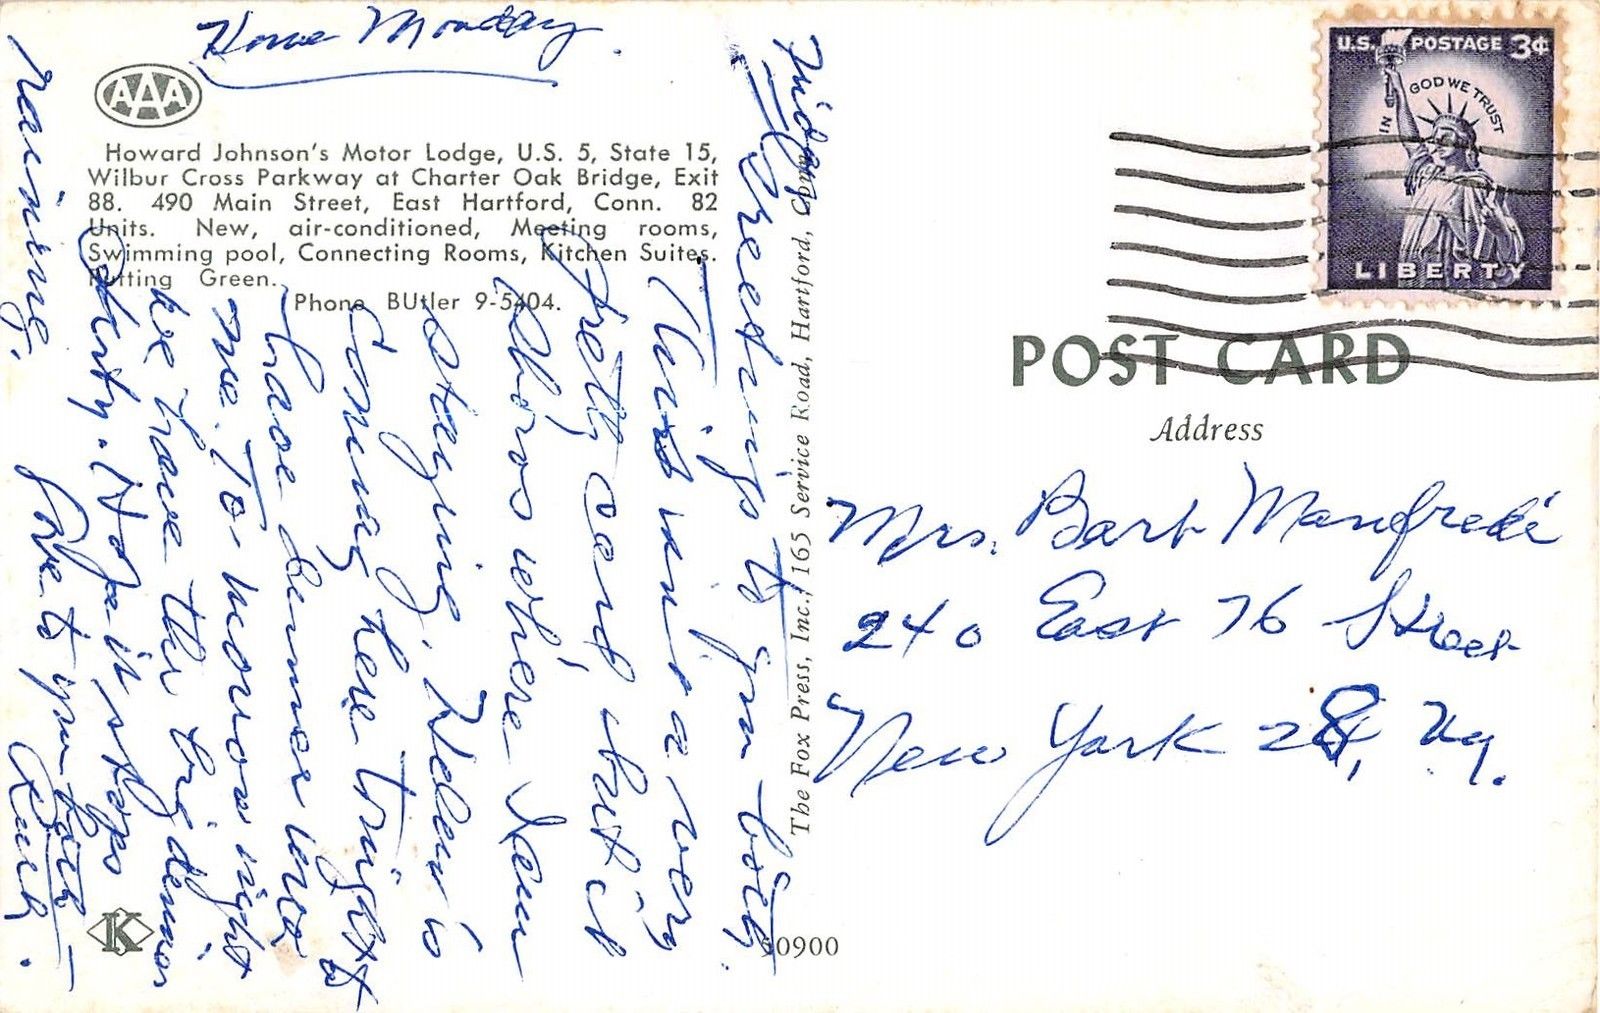 Home Monday.
AAA
Howard Johnson's Motor Lodge, U.S. 5, State 15,
Wilbur Cross Parkway at Charter Oak Bridge, Exit
88. 490 Main Street, East Hartford, Conn. 82
Units. New, air-conditioned, Meeting rooms,
Swimming pool, Connecting Rooms, Kitchen Suites.
Putting Green.
Phone BUtler 9-5404.
Friday
Greetings to you both.
This isn't a very
pretty card but it
shows where I am
staying. Helen is
coming here tonight to
have dinner with
me. To-morrow night
we have the big dinner
party. Hope it stops
raining.
Love to you both -
Ruth.
K
The Fox Press, Inc., 165 Service Road, Hartford, Conn.
50900
U.S. POSTAGE 3¢
IN GOD WE TRUST
LIBERTY
POST CARD
Address
Mrs. Bart Manfredi
240 East 76 Street
New York 28, N.Y.